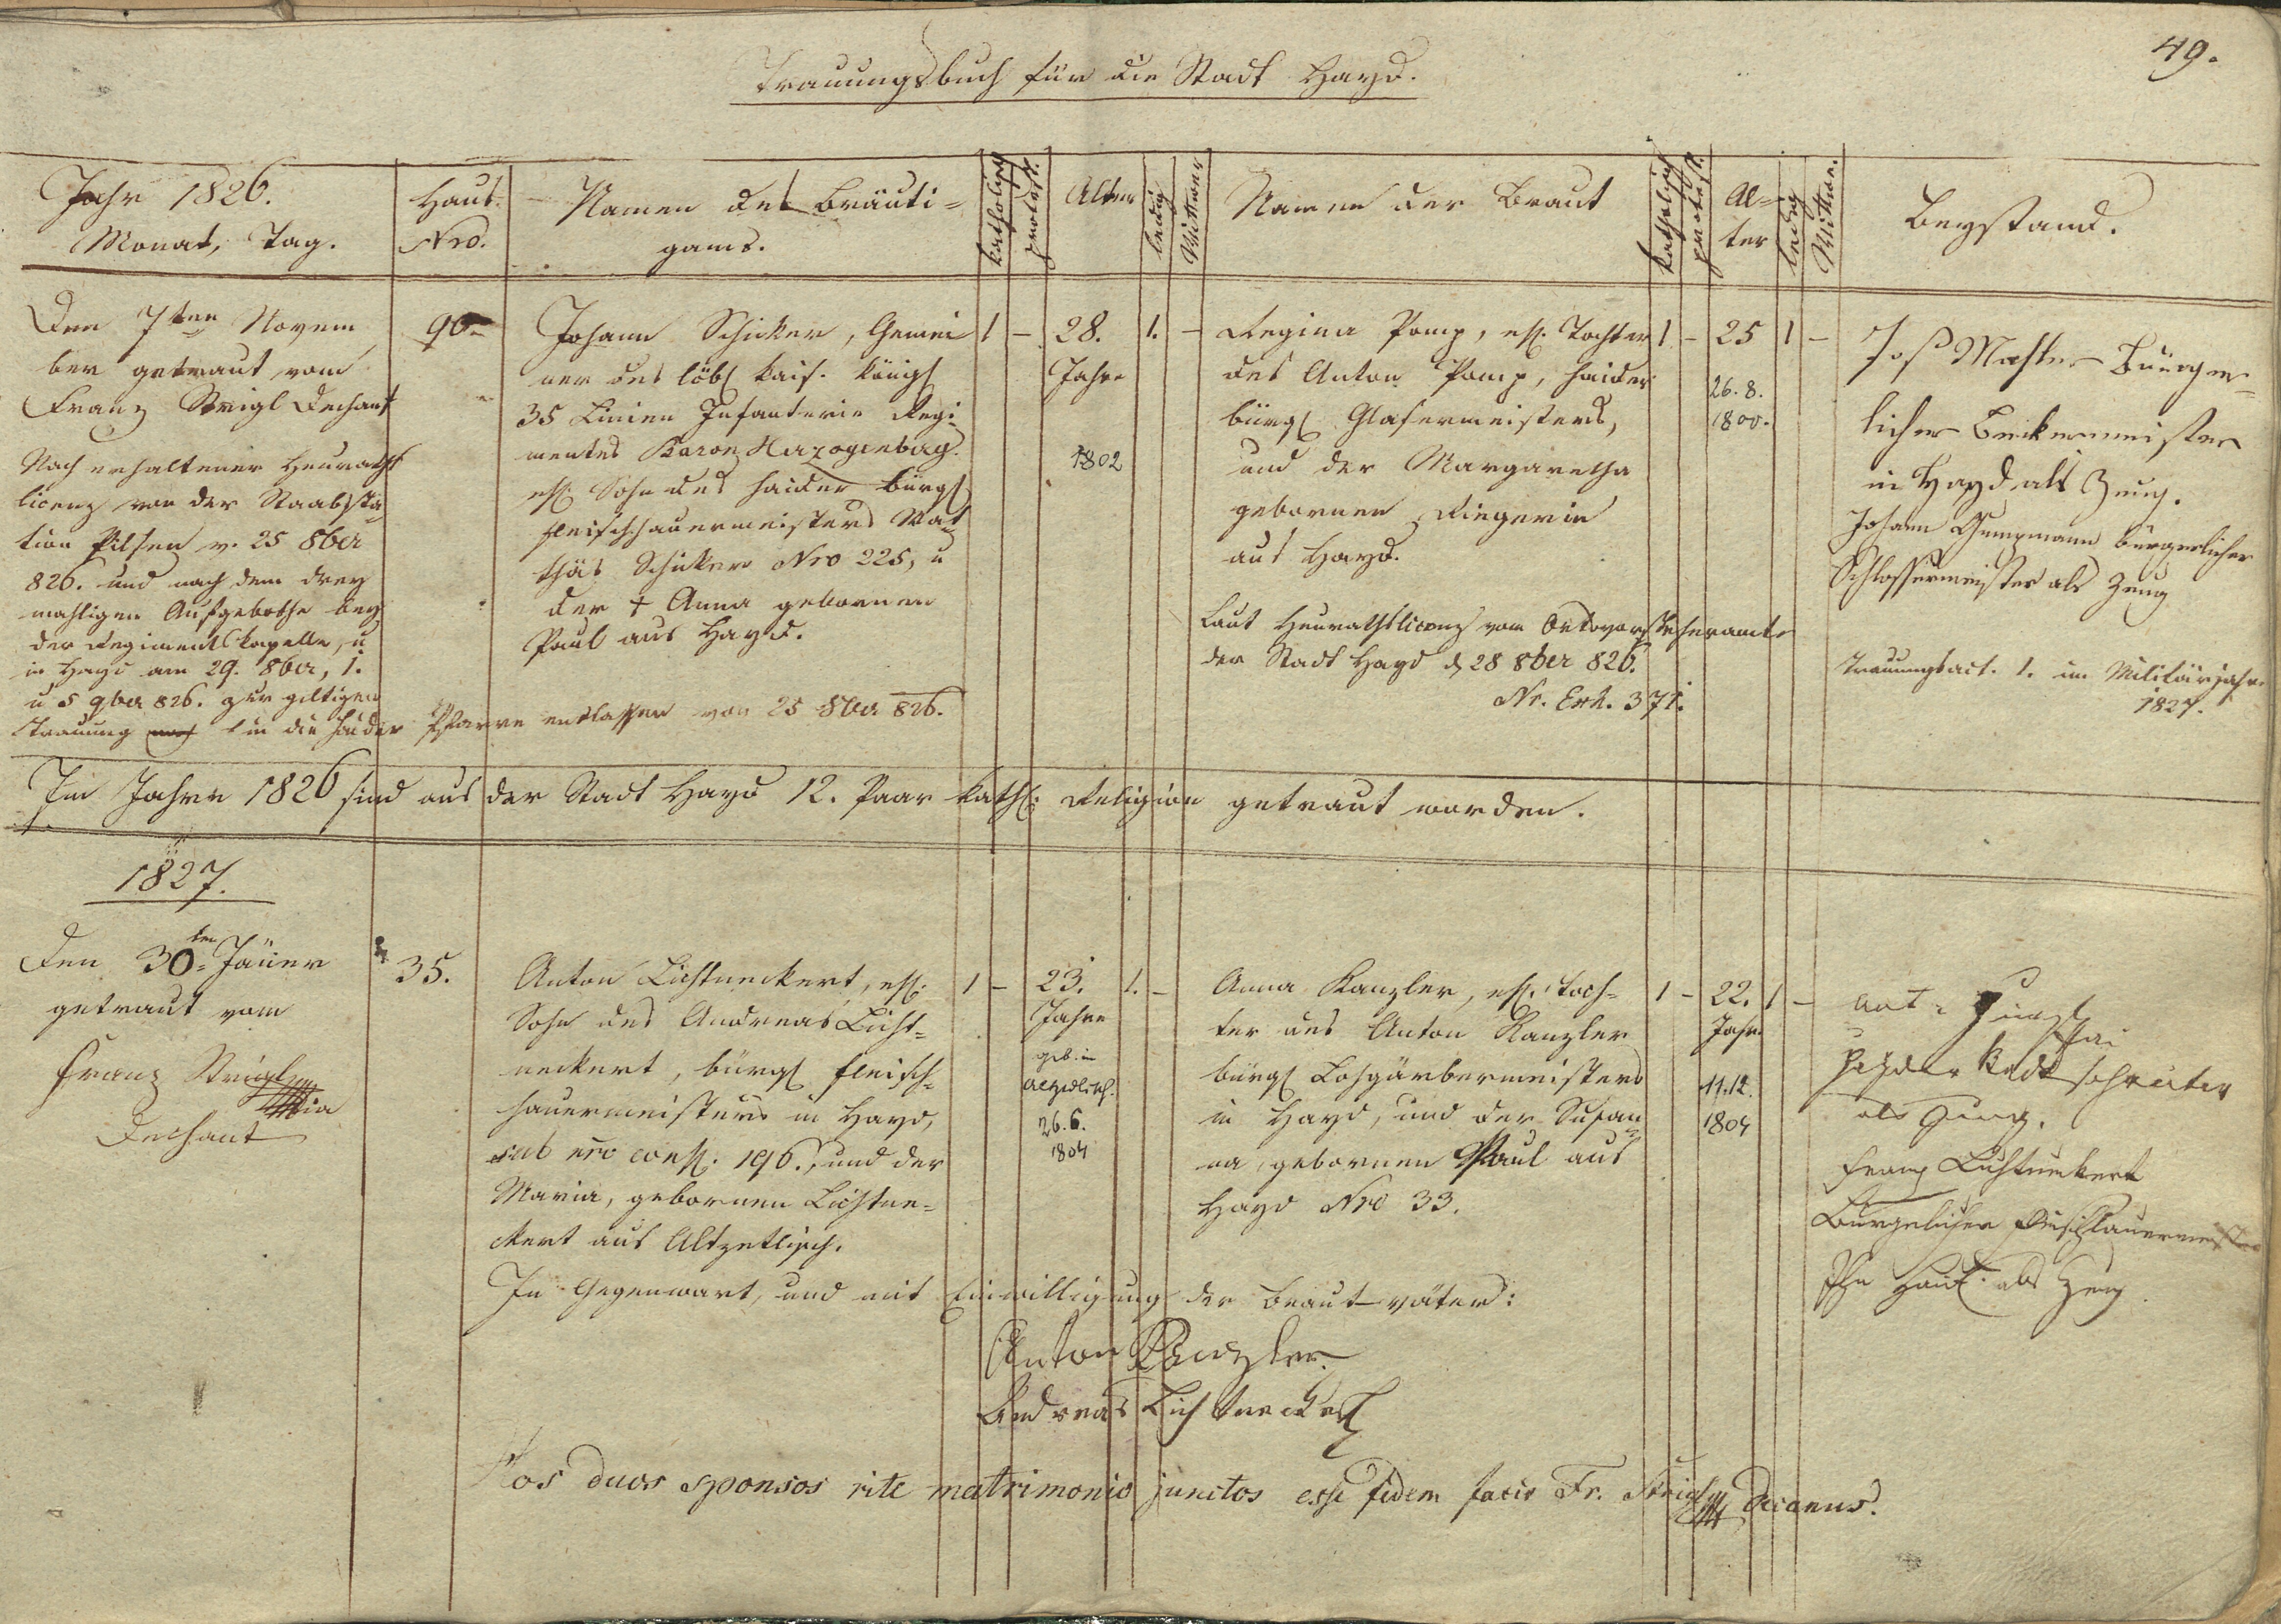 49.
Trauungsbuch für die Stadt Hayd.
Jahr 1826.
Monat, Tag.
Haus
Nro.
Namen des Bräuti=
gams.
katholisch
protest.
Alter
ledig
Wittwer
Namen der Braut
katholisch
protest.
Al=
ter
ledig
Wittwe.
Beystand.
Den 7ten Novem
ber getraut vom
Franz Strigl Dechant
Nach erhaltener Heuraths
licenz von der Staabssta
tion Pilsen v. 25 8ber
826. und nach dem drey
mahligen Aufgebothe bey
der Regimentskapelle, u
in Hayd am 29. 8ber, 1.
u 5 9ber 826. zur giltigen
Trauung in die Haider Pfarre entlassen von 25 8ber 826.
90.
Johann Schicker, Gemei
ner des löbl kais. königl
35 Linien Infanterie Regi=
mentes Baron Herzogenberg.
ehl. Sohn des haider bürgl
Fleischhauermeisters Mat
thäs Schicker Nro 225, u
der † Anna gebornen
Paul aus Hayd.
1 –
28.
Jahre
1802
1. –
Regina Pomp, ehl. Tochter
des Anton Pomp, haider
bürgl Glasermeisters,
und der Margaretha
gebornen Riegerin
aus Hayd.
Laut Heurathslicenz vom Ortsvorsteheramte
der Stadt Hayd d 28 8ber 826.
Nr. Exh. 371.
1 –
25
26.8.
1800.
1 –
Jos Burger=
licher Beckermeister
in Hayd als Zeug.
Johann Gumpmann bürgerlicher
Schlossermeister als Zeug
Trauungsact. 1. im Militärjahre
1827.
Im Jahre 1826 sind aus der Stadt Hayd 12. Paar kathl: Religion getraut worden.
1827.
Den 30ten Jäner
getraut vom
Franz Strigl
Dechant
35.
Anton Lichtneckert, ehl.
Sohn des Andreas Licht=
neckert, bürgl Fleisch=
hauermeisters in Hayd,
sub nro consc. 196., und der
Maria, gebornen Lichtne=
ckert aus Altzetlisch.
1 –
23.
Jahre
geb. in
Altzedlisch.
26.6.
1804
1. –
Anna Kanzler, ehl. Toch=
ter des Anton Kanzler
bürgl Lohgärbermeisters
in Hayd, und der Susan
na, gebornen Paul aus
Hayd Nro 33.
1 –
22.
Jahre
11.12.
1804
1 –
Ant.
als Zeug.
Franz Lichtneckert
Bürgerlicher Fleischhauermeister
Hayd als Zeug
In Gegenwart, und mit Einwilligung der Brautväter:
Anton Kanzler
Andreas Lichtneckert
Hos duos sponsos rite matrimonio junctos esse fidem facit Fr. Strigl Decanus.